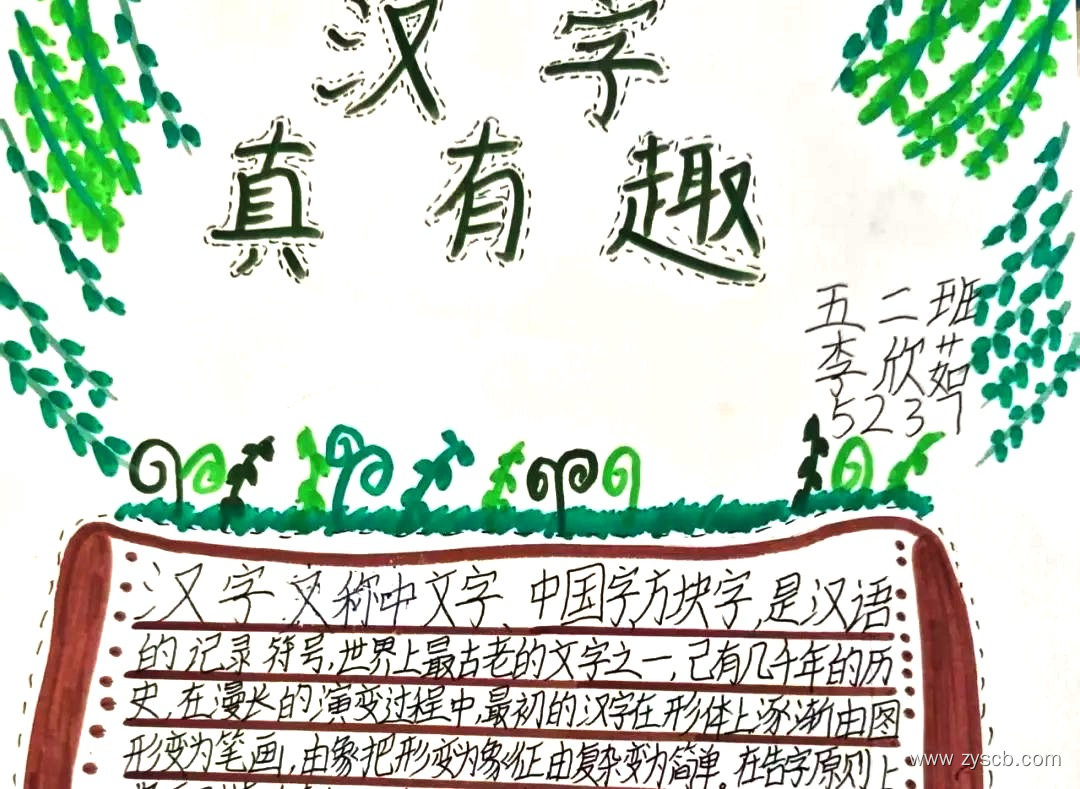 汉字
真有趣
五二班
李欣茹
5237
汉字又称中文字、中国字方块字,是汉语
的记录符号,世界上最古老的文字之一,己有几千年的历
史,在漫长的演变过程中,最初的汉字在形体上逐渐由图
形变为笔画,由象把形变为象征由复杂变为简单。在告字原则上
www.zyscb.com